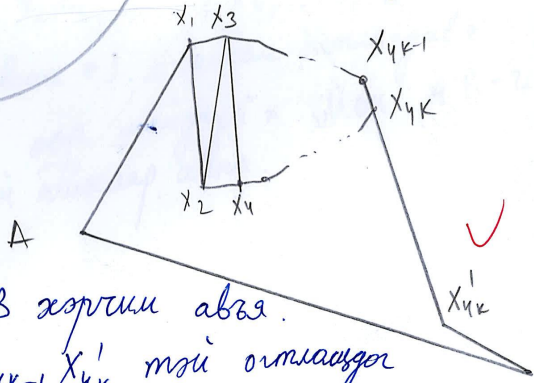 X1 X3
X4K-1
X4K
X2 X4
A
X'4K
в хэрчим авъя.
X'4K тэй огтлолцдог